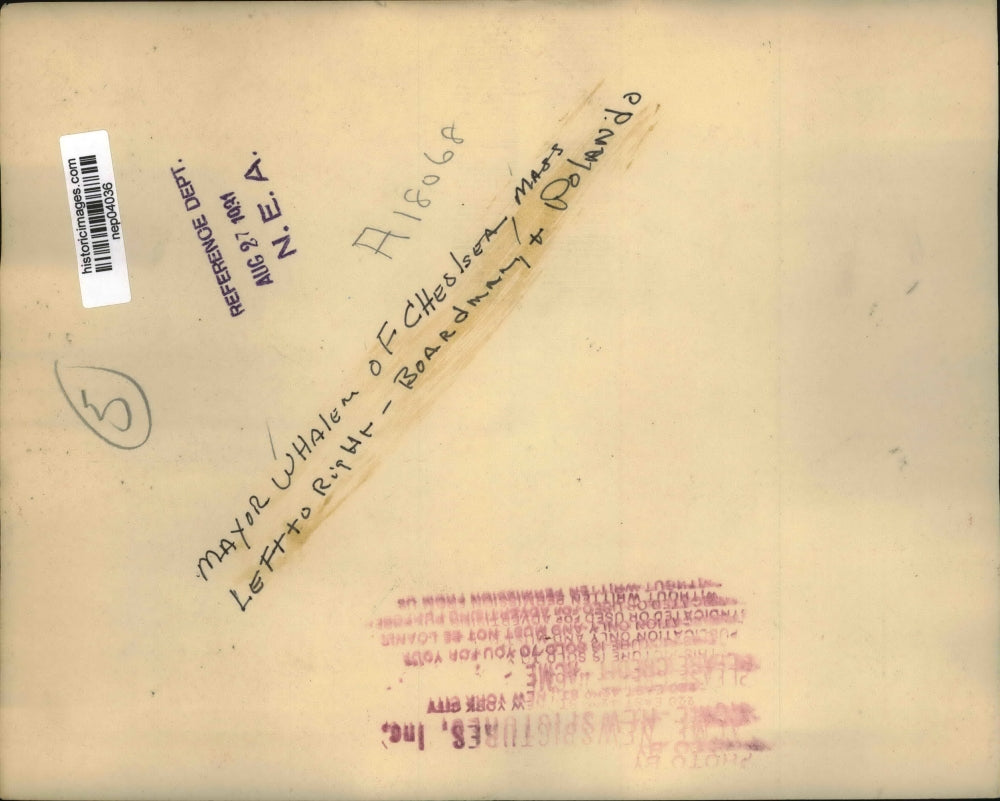 historicimages.com
nep04036
REFERENCE DEPT.
AUG 27 1941
N. E. A.
A18068
5
MAYOR WHALEN OF CHEOLSEA, MASS
LEFT TO RIGHT - BOARdMAN, + POLANDO
PHOTO BY
ACME NEWSPICTURES, Inc.
NEW YORK CITY
PLEASE CREDIT "ACME"
THIS PICTURE IS SOLD TO YOU FOR YOUR
PUBLICATION ONLY AND MUST NOT BE LOANED
SYNDICATED OR USED FOR ADVERTISING PURPOSES
WITHOUT WRITTEN PERMISSION FROM US